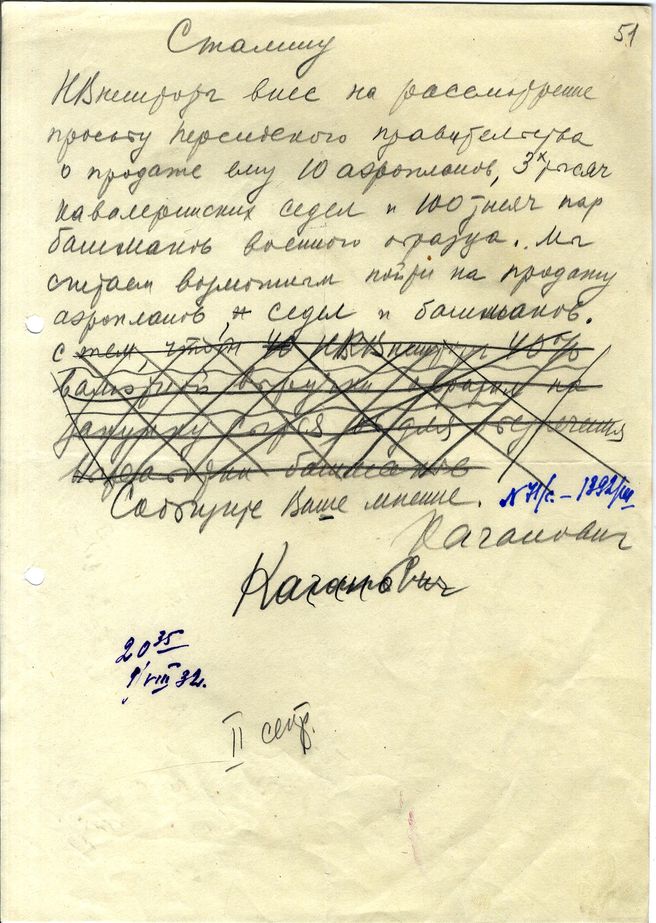 51
Сталину
НКВнешторг внес на рассмотрение
просьбу Персидского правительства
о продаже ему 10 аэропланов, 3х тысяч
кавалерийских седел и 100 тысяч пар
башмаков военного образца. Мы
считаем возможным пойти на продажу
аэропланов, седел и башмаков.
с тем, чтоб НКВнешторг 40%
валютной выручки обратил на
закупку сырья для обеспечения
башмаков
Сообщите Ваше мнение.
Каганович
Каганович
20 35
9/VIII 32.
II сект.